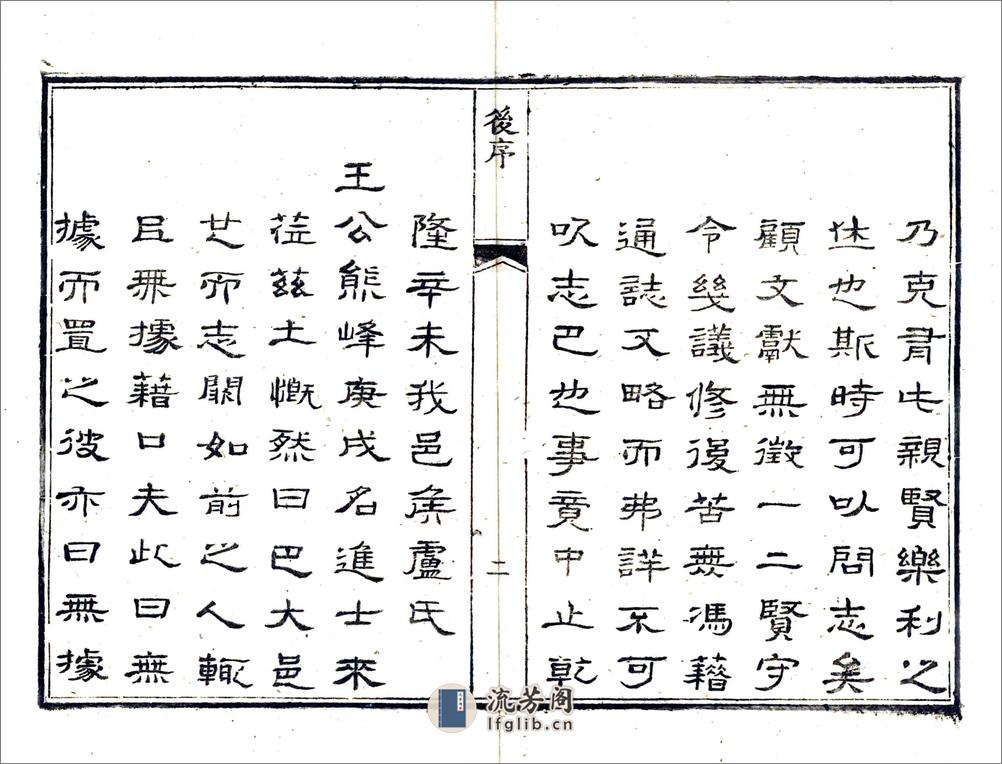 乃克親賢樂利之
休也斯時可以問志矣
顧文獻無徵一二賢守
令幾議修復苦無馮藉
通誌又略而弗詳不可
以志巴也事竟中止乾
後序
二
隆辛未我邑侯盧氏
王公熊峰庚戌名進士來
莅茲土慨然曰巴大邑
也而志闕如前之人輒
㠯無據藉口夫此曰無
據而置之彼亦曰無據
流芳阁
lfglib.cn